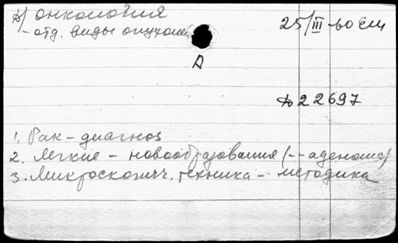 онкология
25/III-60
- отд. виды опухолей
А
Д22697
1. Рак - диагноз
2. Легкие - новообразования (-- аденома)
3. Микроскопич. техника - методика